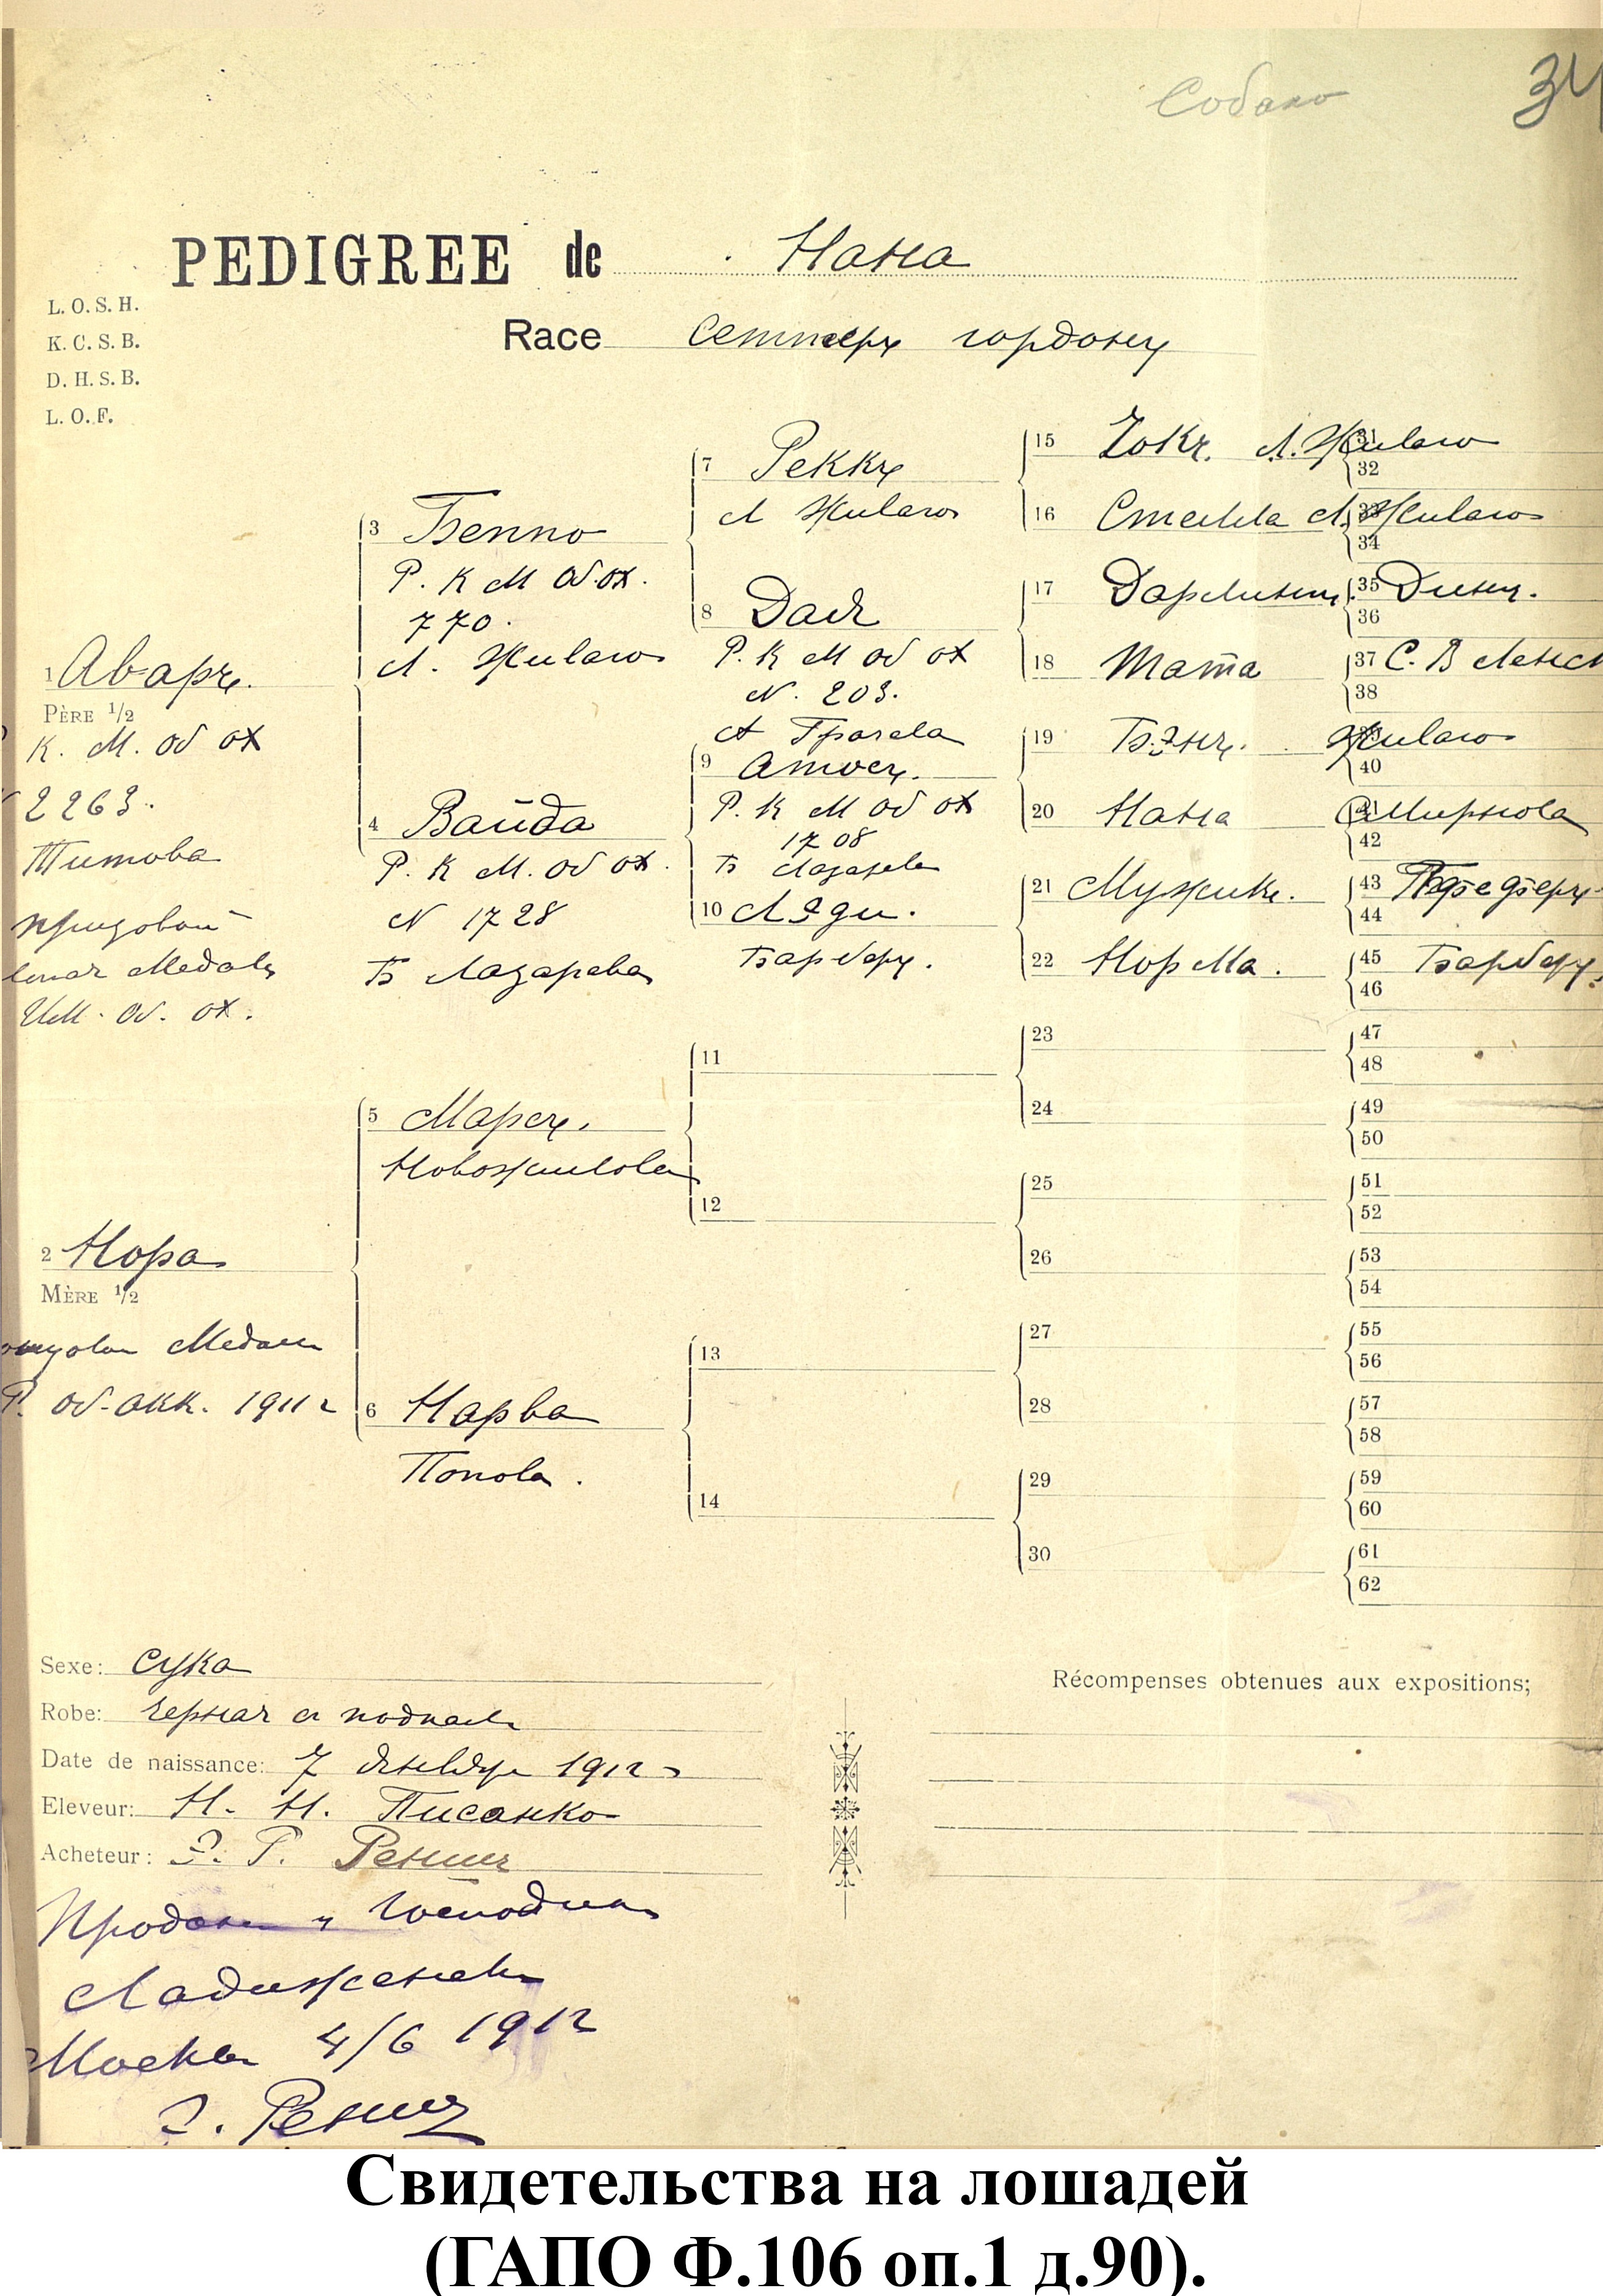 Собако
34
PEDIGREE de Нана
L. O. S. H.
K. C. S. B.
D. H. S. B.
L. O. F.
Race Сеттеръ гордонъ
1 Аваръ.
PÈRE 1/2
К. М. Об ох
2263.
Титова
призовой
Медаль
Им. Об. ох.
2 Нора
MÈRE 1/2
Медали
Р. Об. 1911 г
3 Бенно
Р. К М Об. ох.
770.
А. Живаго
4 Вайда
Р. К М. Об ох.
N 1728
Б Лазарева
5 Марсъ.
Новожилова
6 Нарва
Попова.
7 Реккъ
А Живаго
8 Дая
Р. К М Об ох
N. 203.
А Грачева
9 Атосъ.
Р. К М Об ох
1708
Б Лазарева
10 Лэди.
Барберъ.
11
12
13
14
15 А. Живаго
16 Стелла А. Живаго
17
18 Тата
19 Бэнъ. Живаго
20 Нана Смирнова
21 Мужикъ.
22 Норма.
23
24
25
26
27
28
29
30
31
32
33
34
35 Динъ.
36
37 С. В
38
40
41
42
43
44
45 Барберъ.
46
47
48
49
50
51
52
53
54
55
56
57
58
59
60
61
62
Sexe: Сука
Robe: черная съ подпал
Date de naissance: 7 1912
Eleveur: Н. Н. Писанко
Acheteur: Э. Г. Ренни
Récompenses obtenues aux expositions;
Продана
Москва 4/6 1912
Э. Ренни
Свидетельства на лошадей
(ГАПО Ф.106 оп.1 д.90).